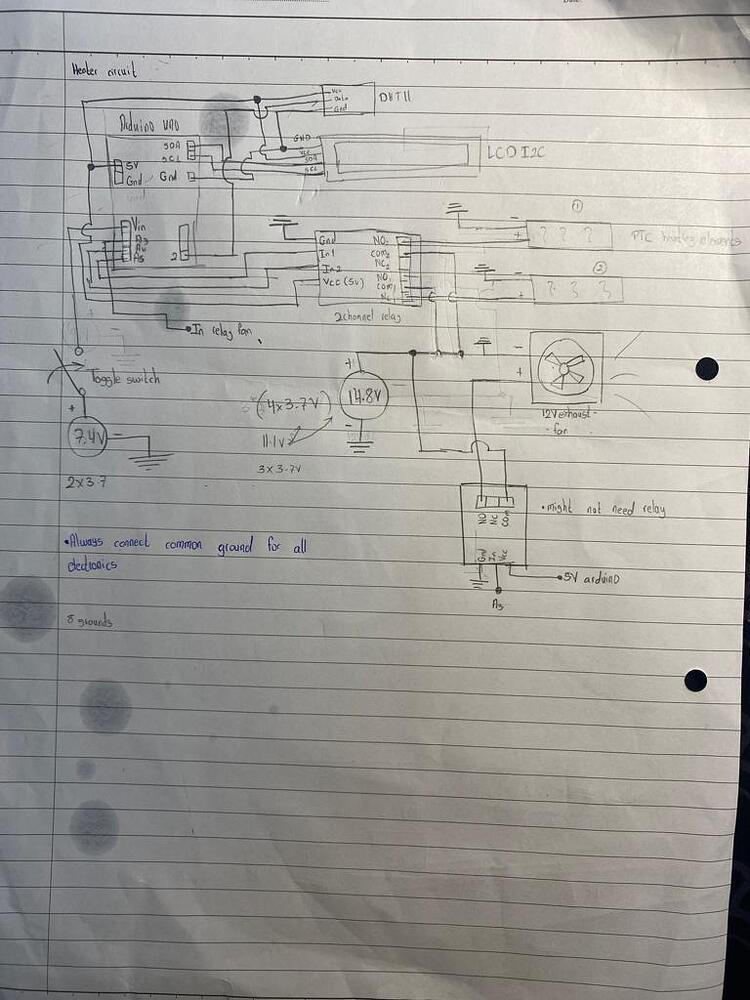 Heater circuit
Vcc
Data
Gnd
DHT11
Arduino UNO
SDA
SCL
5V
Gnd
Gnd
GND
VCC
SDA
SCL
LCD I2C
Vin
A3
A4
A5
2
Gnd
In1
In2
Vcc (5v)
NO2
com2
NC2
NO1
com1
NC1
2channel relay
①
-
+
PTC heating elements
②
-
+
In relay fan
Toggle switch
+
7.4V
-
2x3.7
+
14.8V
-
(4x3.7V)
11.1v
3x3.7v
-
+
12V exhaust-
fan
NO
NC
COM
Gnd
In
Vcc
•might not need relay
5V arduino
A3
•Always connect common ground for all
electronics
8 grounds